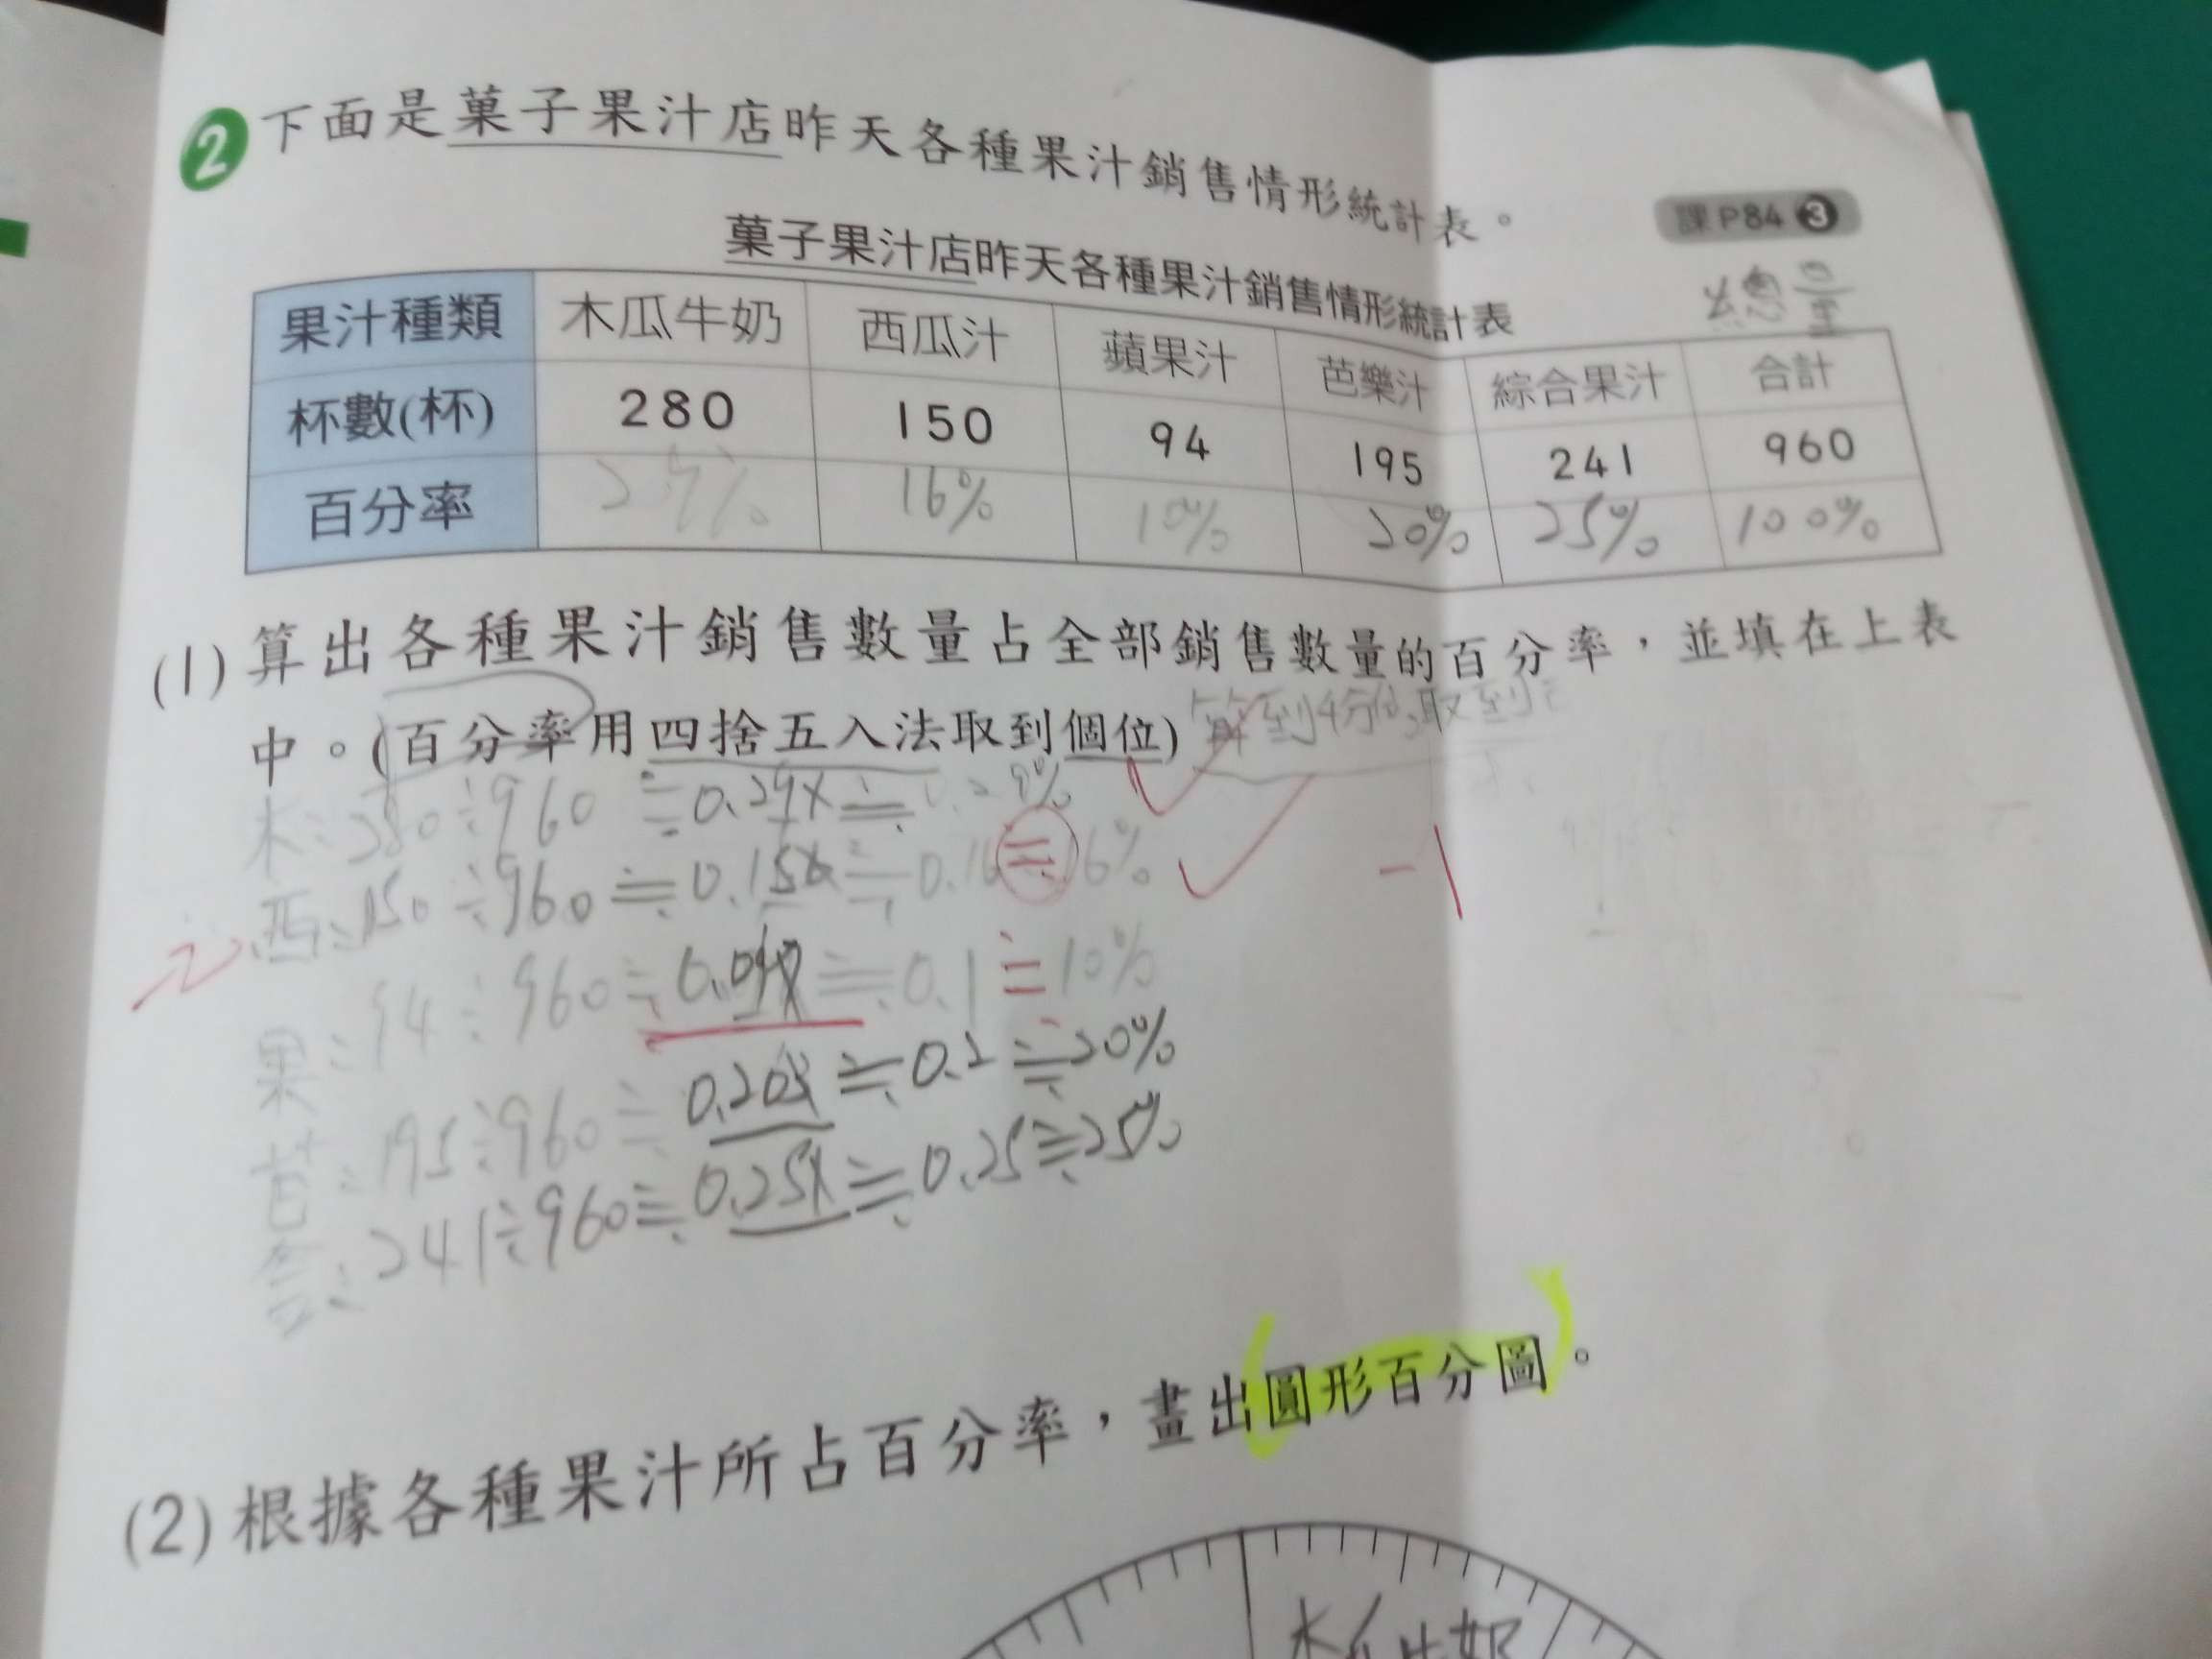 2 下面是菓子果汁店昨天各種果汁銷售情形統計表。
課P84 3
菓子果汁店昨天各種果汁銷售情形統計表
總量
果汁種類 木瓜牛奶 西瓜汁 蘋果汁 芭樂汁 綜合果汁 合計
杯數(杯) 280 150 94 195 241 960
百分率 29% 16% 10% 20% 25% 100%
(1)算出各種果汁銷售數量占全部銷售數量的百分率,並填在上表
中。(百分率用四捨五入法取到個位)
木:280÷960≒0.29
西:150÷960≒0.156≒0.16≒16%
-1
果:94÷960≒ ≒0.1≒10%
芭:195÷960≒0.203≒0.2≒20%
合:241÷960≒0.251≒0.25≒25%
(2)根據各種果汁所占百分率,畫出圓形百分圖。
木瓜牛奶